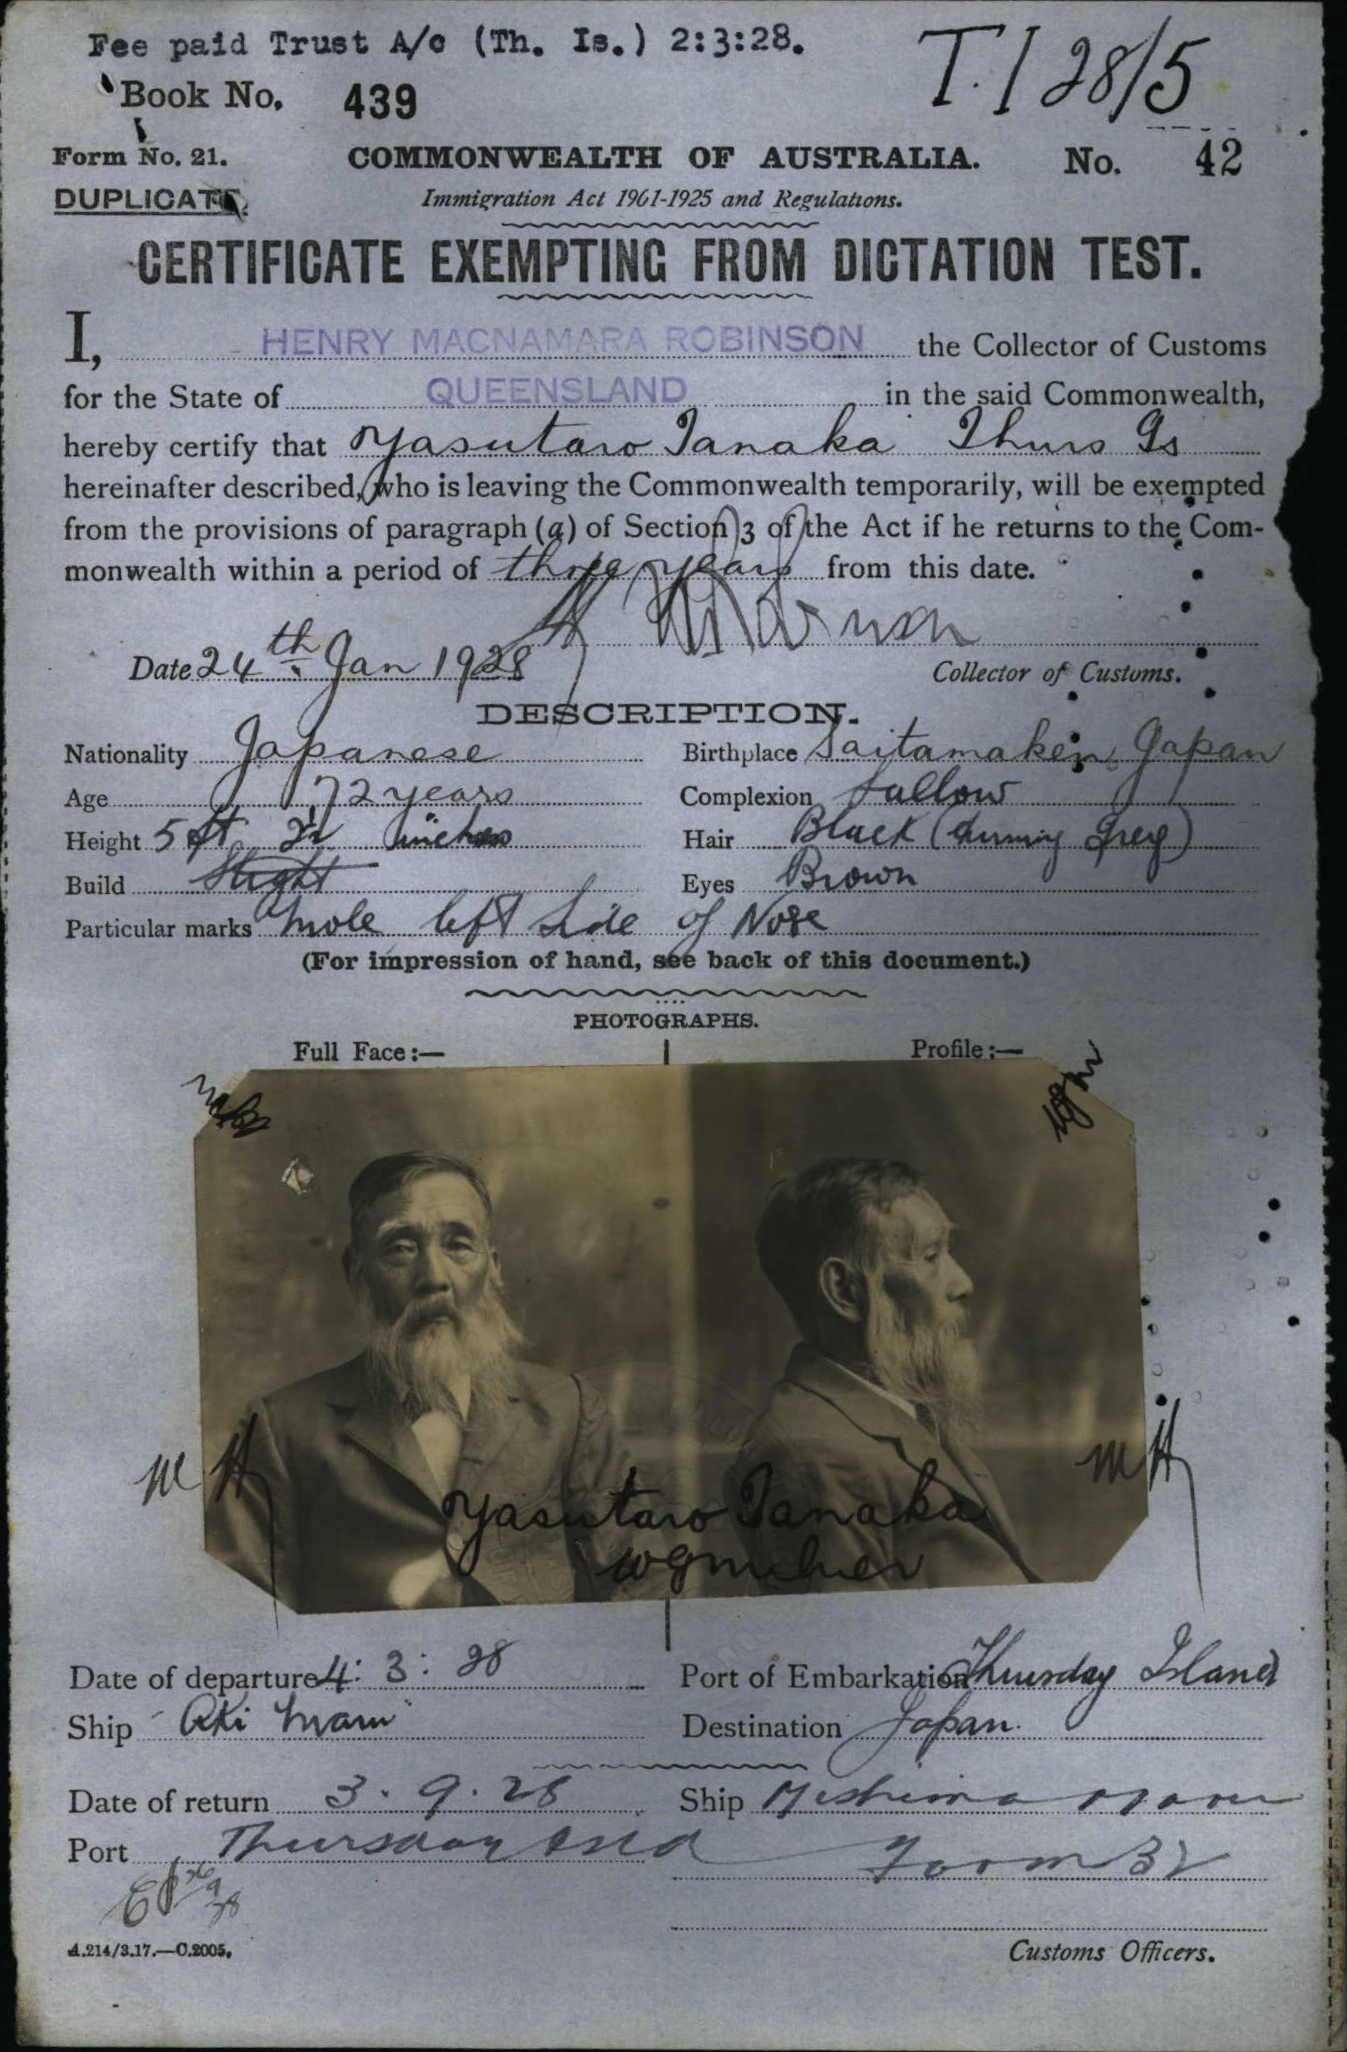 Fee paid Trust A/c (Th. Is.) 2:3:28.
T.I 28/5
Book No. 439
Form No. 21. COMMONWEALTH OF AUSTRALIA. No. 42
DUPLICATE.
Immigration Act 1901-1925 and Regulations.
CERTIFICATE EXEMPTING FROM DICTATION TEST.
I, HENRY MACNAMARA ROBINSON the Collector of Customs
for the State of QUEENSLAND in the said Commonwealth,
hereby certify that Yasutaro Tanaka Thurs Is
hereinafter described, who is leaving the Commonwealth temporarily, will be exempted
from the provisions of paragraph (a) of Section 3 of the Act if he returns to the Com-
monwealth within a period of three years from this date.
Date 24th Jan 1928
Collector of Customs.
DESCRIPTION.
Nationality Japanese Birthplace Saitamaken, Japan
Age 72 years Complexion Sallow
Height 5 ft 2½ inches Hair Black (turning Grey)
Build Slight Eyes Brown
Particular marks Mole left side of Nose
(For impression of hand, see back of this document.)
PHOTOGRAPHS.
Full Face:— Profile:—
M H M H
Yasutaro Tanaka
Date of departure 4: 3: 28 Port of Embarkation Thursday Island
Ship Aki Maru Destination Japan.
Date of return 3. 9. 28 Ship Mishima Maru
Port Thursday Isld Form 32
A.214/3.17.—C.2005. Customs Officers.